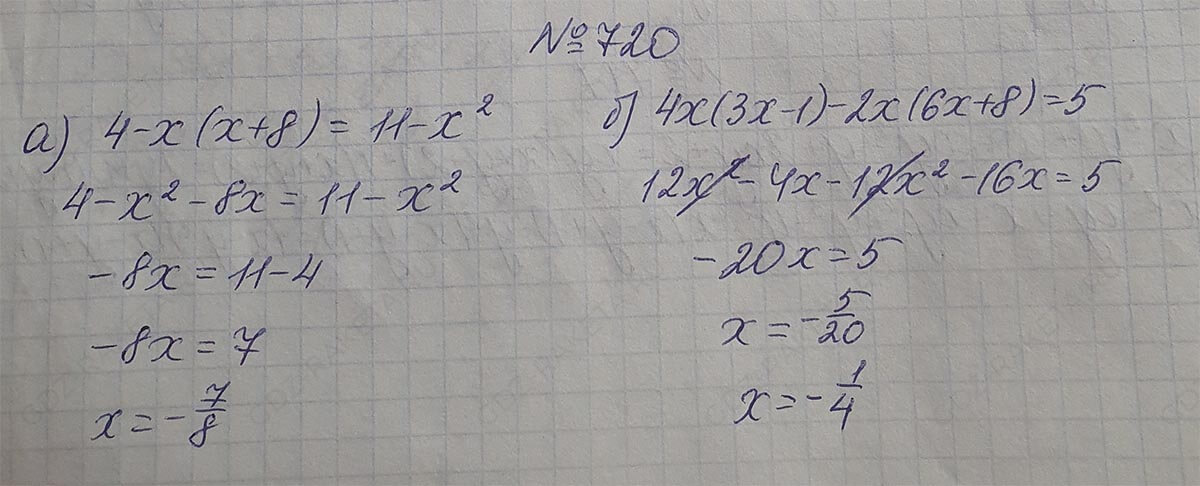 №720
а) 4-x(x+8)=11-x²
4-x²-8x=11-x²
-8x=11-4
-8x=7
x=-7/8
б) 4x(3x-1)-2x(6x+8)=5
12x²-4x-12x²-16x=5
-20x=5
x=-5/20
x=-1/4